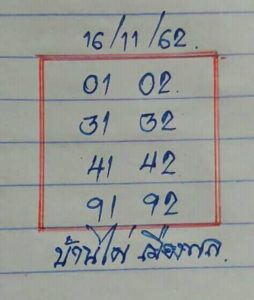 16/11/62.
01 02
31 32
41 42
91 92
บ้านไผ่ เมืองพล.